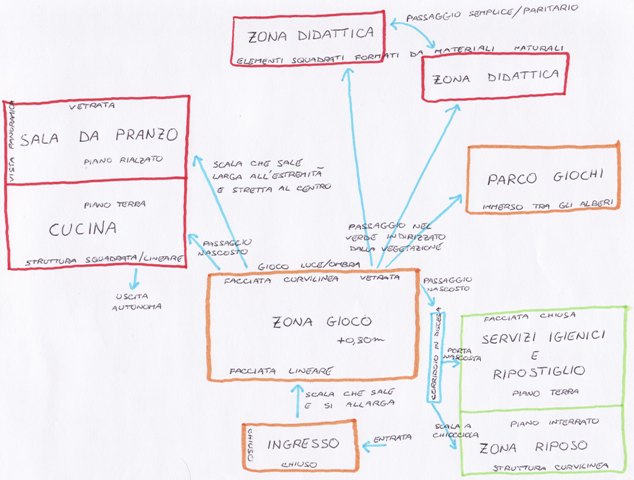 ZONA DIDATTICA
PASSAGGIO SEMPLICE/PARITARIO
ELEMENTI SQUADRATI FORMATI DA MATERIALI NATURALI
ZONA DIDATTICA
VISTA PANORAMICA
VETRATA
SALA DA PRANZO
PIANO RIALZATO
PIANO TERRA
CUCINA
STRUTTURA SQUADRATA/LINEARE
USCITA
AUTONOMA
SCALA CHE SALE
LARGA ALL'ESTREMITÀ
E STRETTA AL CENTRO
PASSAGGIO
NASCOSTO
PARCO GIOCHI
IMMERSO TRA GLI ALBERI
PASSAGGIO NEL
VERDE INDIRIZZATO
DALLA VEGETAZIONE
GIOCO LUCE/OMBRA
FACCIATA CURVILINEA VETRATA
ZONA GIOCO
+0,30m
FACCIATA LINEARE
PASSAGGIO
NASCOSTO
CORRIDOIO IN DISCESA
PORTA
NASCOSTA
FACCIATA CHIUSA
SERVIZI IGIENICI
E
RIPOSTIGLIO
PIANO TERRA
SCALA A
CHIOCCIOLA
PIANO INTERRATO
ZONA RIPOSO
STRUTTURA CURVILINEA
SCALA CHE SALE
E SI ALLARGA
CHIUSO
INGRESSO
CHIUSO
ENTRATA